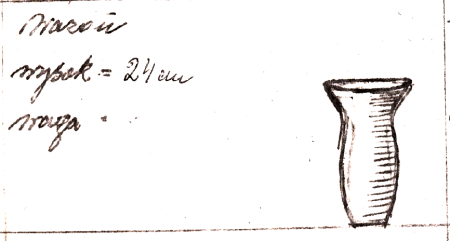 Wazon
wysok = 24 cm
waga -